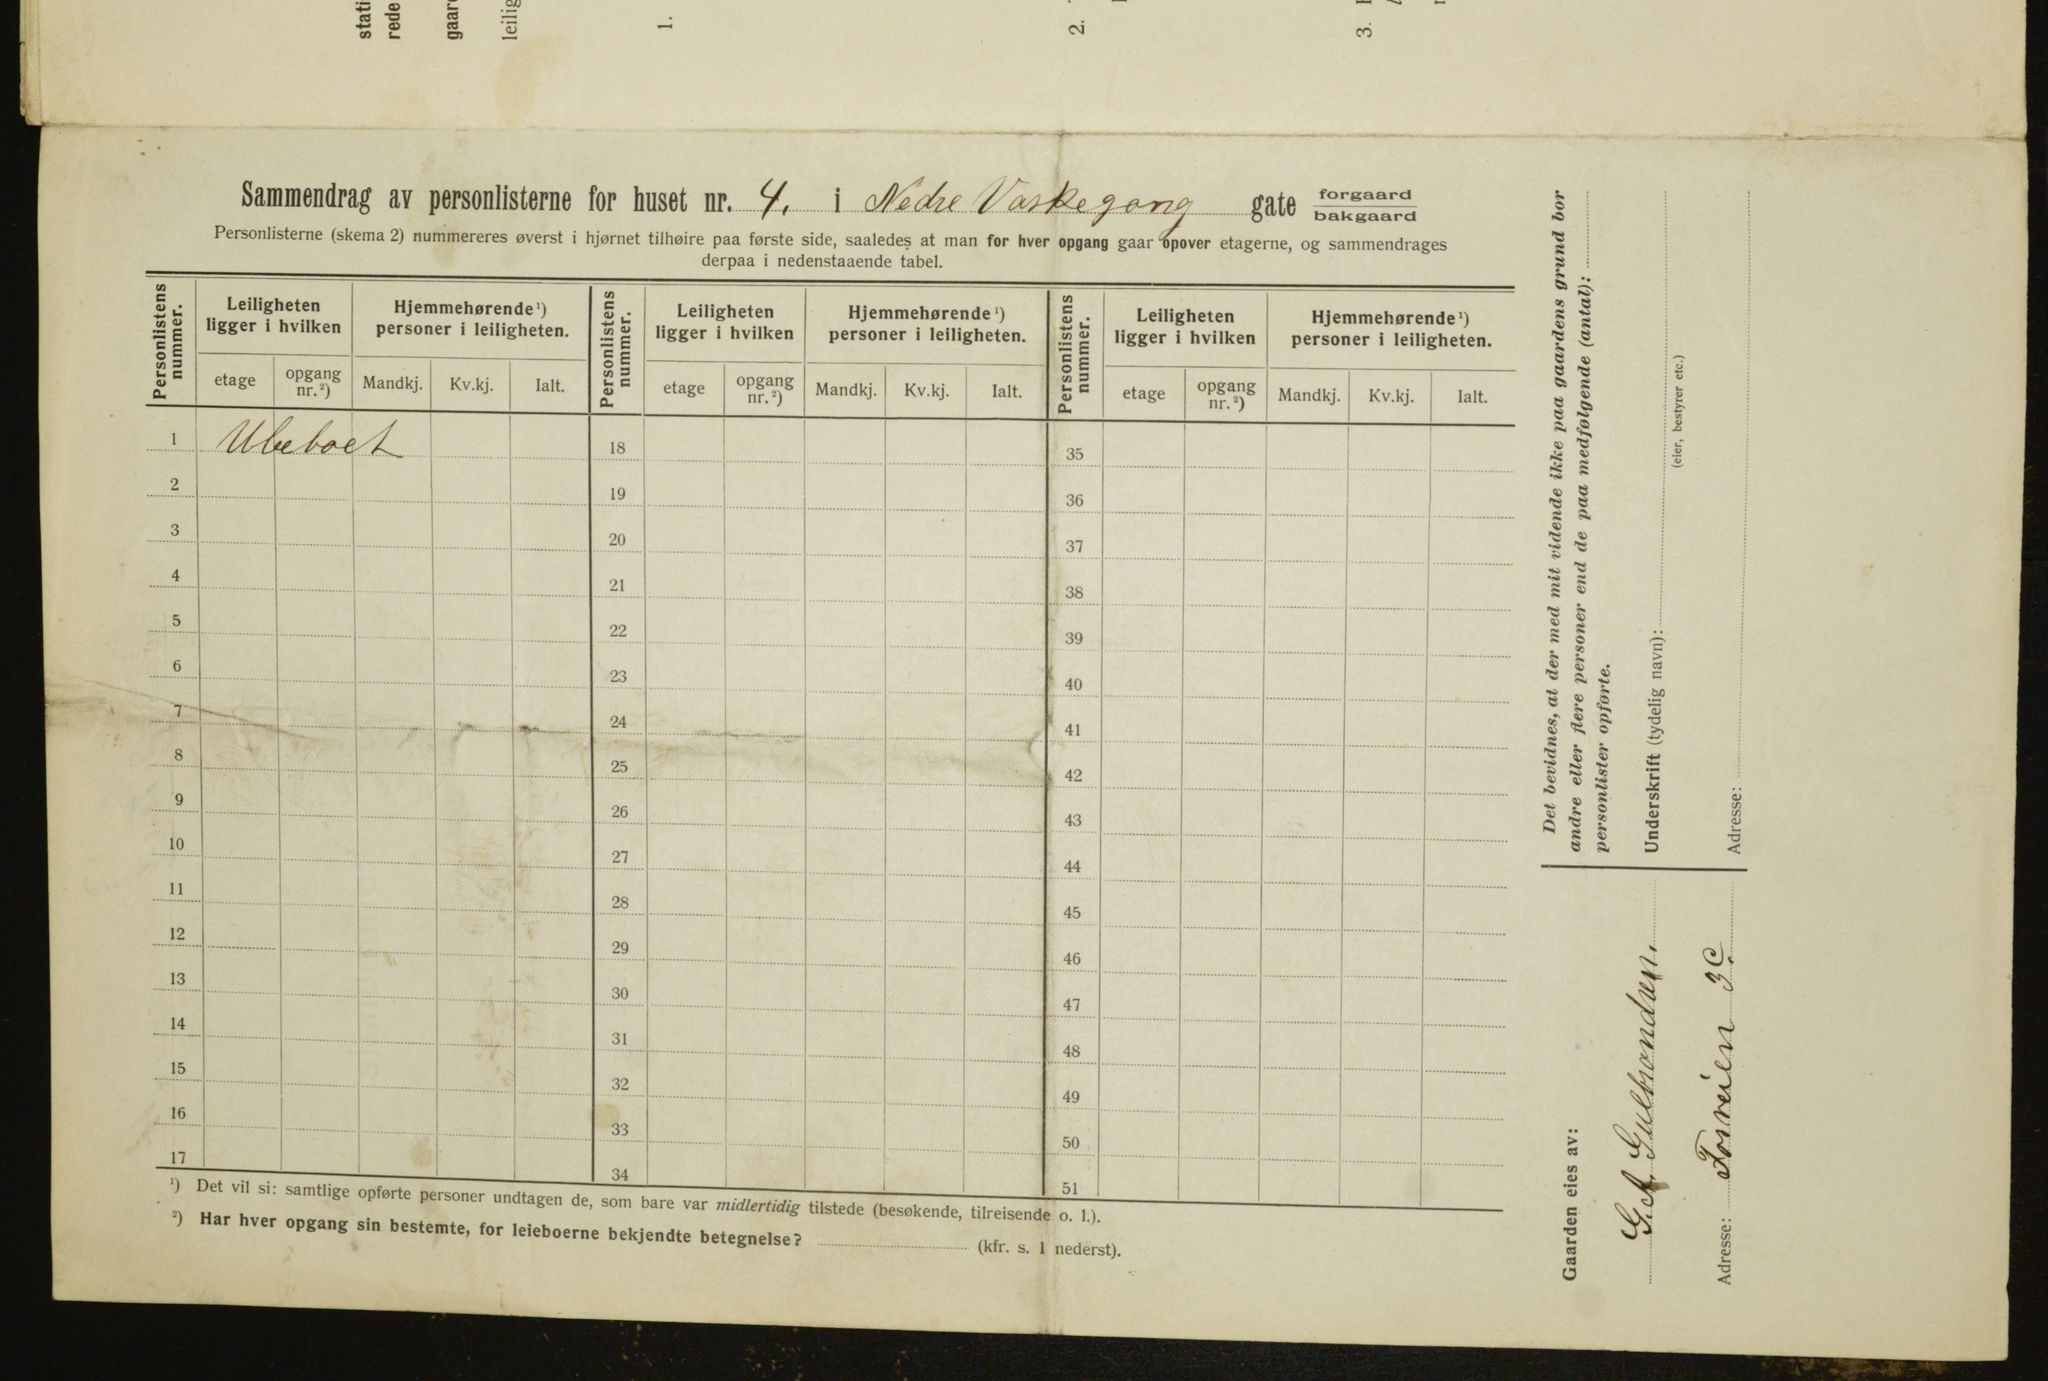 stati
rede
gaard
leilig
1.
2.
3.
Sammendrag av personlisterne for huset nr. 4. i Nedre Vaskegang gate forgaard
bakgaard
Personlisterne (skema 2) nummereres øverst i hjørnet tilhøire paa første side, saaledes at man for hver opgang gaar opover etagerne, og sammendrages
derpaa i nedenstaaende tabel.
Personlistens nummer. Leiligheten ligger i hvilken Hjemmehørende ¹) personer i leiligheten. Personlistens nummer. Leiligheten ligger i hvilken Hjemmehørende ¹) personer i leiligheten. Personlistens nummer. Leiligheten ligger i hvilken Hjemmehørende ¹) personer i leiligheten.
etage opgang nr. ²) Mandkj. Kv.kj. Ialt. etage opgang nr. ²) Mandkj. Kv.kj. Ialt. etage opgang nr. ²) Mandkj. Kv.kj. Ialt.
1 Ubeboet 18 35
2 19 36
3 20 37
4 21 38
5 22 39
6 23 40
7 24 41
8 25 42
9 26 43
10 27 44
11 28 45
12 29 46
13 30 47
14 31 48
15 32 49
16 33 50
17 34 51
¹) Det vil si: samtlige opførte personer undtagen de, som bare var midlertidig tilstede (besøkende, tilreisende o. l.).
²) Har hver opgang sin bestemte, for leieboerne bekjendte betegnelse? (kfr. s. 1 nederst).
Gaarden eies av:
G. A. Gulbrandsen.
Adresse: Fosveien 3 C.
Det bevidnes, at der med mit vidende ikke paa gaardens grund bor
andre eller flere personer end de paa medfølgende (antal):
personlister opførte.
Underskrift (tydelig navn):
(eier, bestyrer etc.)
Adresse: